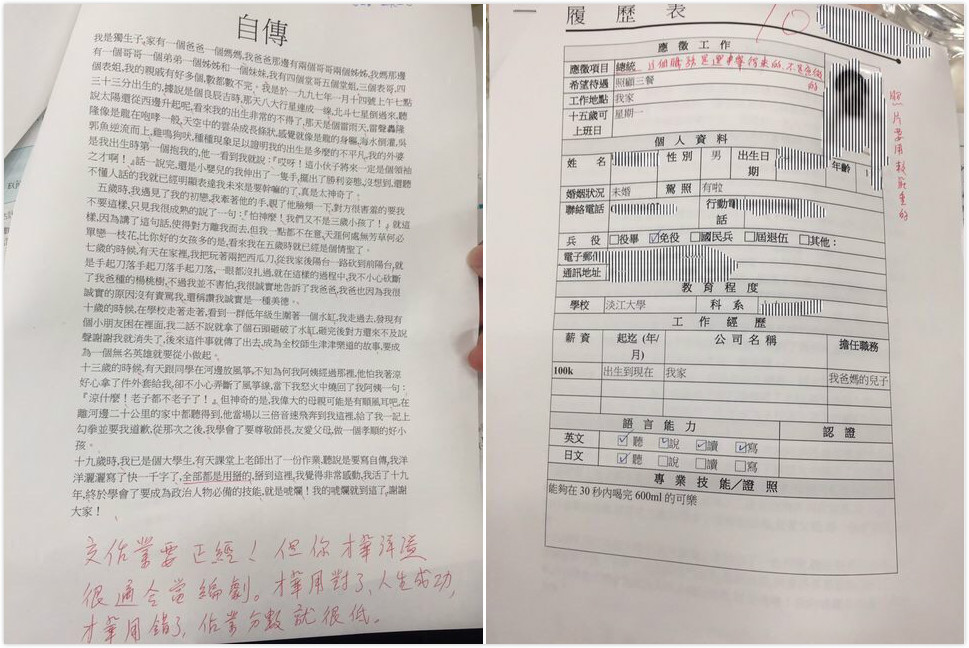 自傳
我是獨生子,家有一個爸爸一個媽媽,我爸爸那邊有兩個哥哥兩個姊姊,我媽那邊
有一個哥哥一個弟弟一個姊姊和一個妹妹,我有四個堂哥五個堂姐,三個表哥,四
個表姐,我的親戚有好多個,數都數不完。我是於一九九七年一月十四號上午七點
三十三分出生的,據說是個良辰吉時,那天八大行星連成一線,北斗七星倒過來,聽
說太陽還從西邊升起呢,看來我的出生非常的不得了,那天是個雷雨天,雷聲轟隆
隆像是龍在咆哮一般,天空中的雲朵成長條狀,感覺就像是龍的身軀,海水倒灌,吳
郭魚逆流而上,雞鳴狗吠,種種現象足以證明我的出生是多麼的不平凡,我的外婆
是我出生時第一個抱我的,他一看到我就說:『哎呀!這小伙子將來一定是個領袖
之才啊!』話一說完,還是小嬰兒的我伸出了一隻手,擺出了勝利姿態,沒想到,還聽
不懂人話的我就已經明顯表達我未來是要幹嘛的了,真是太神奇了。
五歲時,我遇見了我的初戀,我牽著他的手,親了他臉頰一下,對方很害羞的要我
不要這樣,只見我很成熟的說了一句:『怕神麼!我們又不是三歲小孩了!』就這
樣,因為講了這句話,使得對方離我而去,但我一點都不在意,天涯何處無芳草何必
單戀一枝花,比你好的女孩多的是,看來我在五歲時就已經是個情聖了。
七歲的時候,有天在家裡,我把玩著兩把西瓜刀,從我家後陽台一路砍到前陽台,就
是手起刀落手起刀落手起刀落,一眼都沒扎過,就在這樣的過程中,我不小心砍斷
了我爸種的楊桃樹,不過我並不害怕,我很誠實地告訴了我爸爸,我爸也因為我很
誠實的原因沒有責罵我,還稱讚我誠實是一種美德。
十歲的時候,在學校走著走著,看到一群低年級生圍著一個水缸,我走過去,發現有
個小朋友困在裡面,我二話不說就拿了個石頭砸破了水缸,砸完後對方還來不及說
聲謝謝我就消失了,後來這件事就傳了出去,成為全校師生津津樂道的故事,要成
為一個無名英雄就要從小做起。
十三歲的時候,有天跟同學在河邊放風箏,不知為何我阿姨經過那裡,他怕我著涼
好心拿了件外套給我,卻不小心弄斷了風箏線,當下我怒火中燒回了我阿姨一句:
『涼什麼!老子都不老子了!』但神奇的是,我偉大的母親可能是有順風耳吧,在
離河邊二十公里的家中都聽得到,他當場以三倍音速飛奔到我這裡,給了我一記上
勾拳並要我道歉,從那次之後,我學會了要尊敬師長,友愛父母,做一個孝順的好小
孩。
十九歲時,我已是個大學生,有天課堂上老師出了一份作業,聽說是要寫自傳,我洋
洋灑灑寫了快一千字了,全部都是用掰的,掰到這裡,我覺得非常感動,我活了十九
年,終於學會了要成為政治人物必備的技能,就是唬爛!我的唬爛就到這了,謝謝
大家!
交作業要正經!但你才華洋溢
很適合當編劇。才華用對了,人生成功,
才華用錯了,作業分數就很低。
履歷表
10
應徵工作
應徵項目 總統 這個職務是選舉得來的,不是應徵的
希望待遇 照顧三餐
工作地點 我家
十五歲可上班日 星期一
照片要用較正式的
個人資料
姓名 性別 男 出生日期 年齡
婚姻狀況 未婚 駕照 有啦
聯絡電話 行動電話
兵役 □役畢 ☑免役 □國民兵 □屆退伍 □其他:
電子郵件
通訊地址
教育程度
學校 淡江大學 科系
工作經歷
薪資 起迄(年/月) 公司名稱 擔任職務
100k 出生到現在 我家 我爸媽的兒子
語言能力 認證
英文 ☑聽 ☑說 ☑讀 ☑寫
日文 ☑聽 □說 □讀 □寫
專業技能/證照
能夠在30秒內喝完600ml的可樂